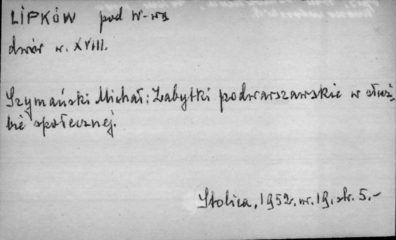 LIPKÓW pod W-wą
dwór w. XVIII.
Szymański Michał: Zabytki podwarszawskie w służ-
bie społecznej.
Stolica, 1952. nr. 19. str. 5.-